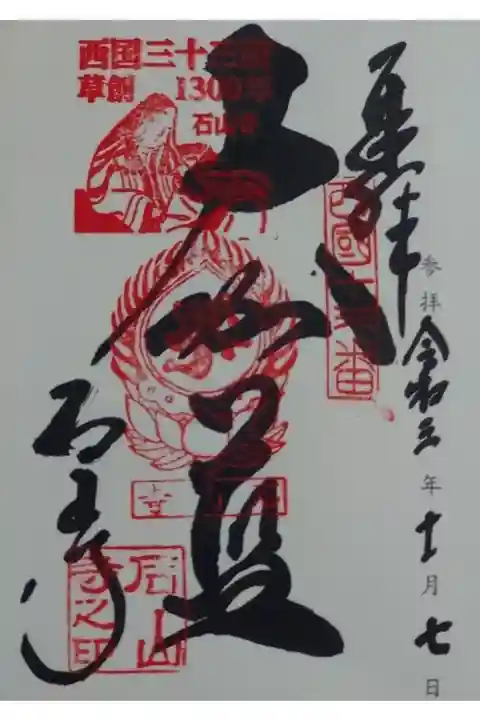 奉拝
西國十三番
参拝 令和三年十一月七日
西国三十三所
草創 1300年
石山寺
大伽藍
石山寺
石山寺之印